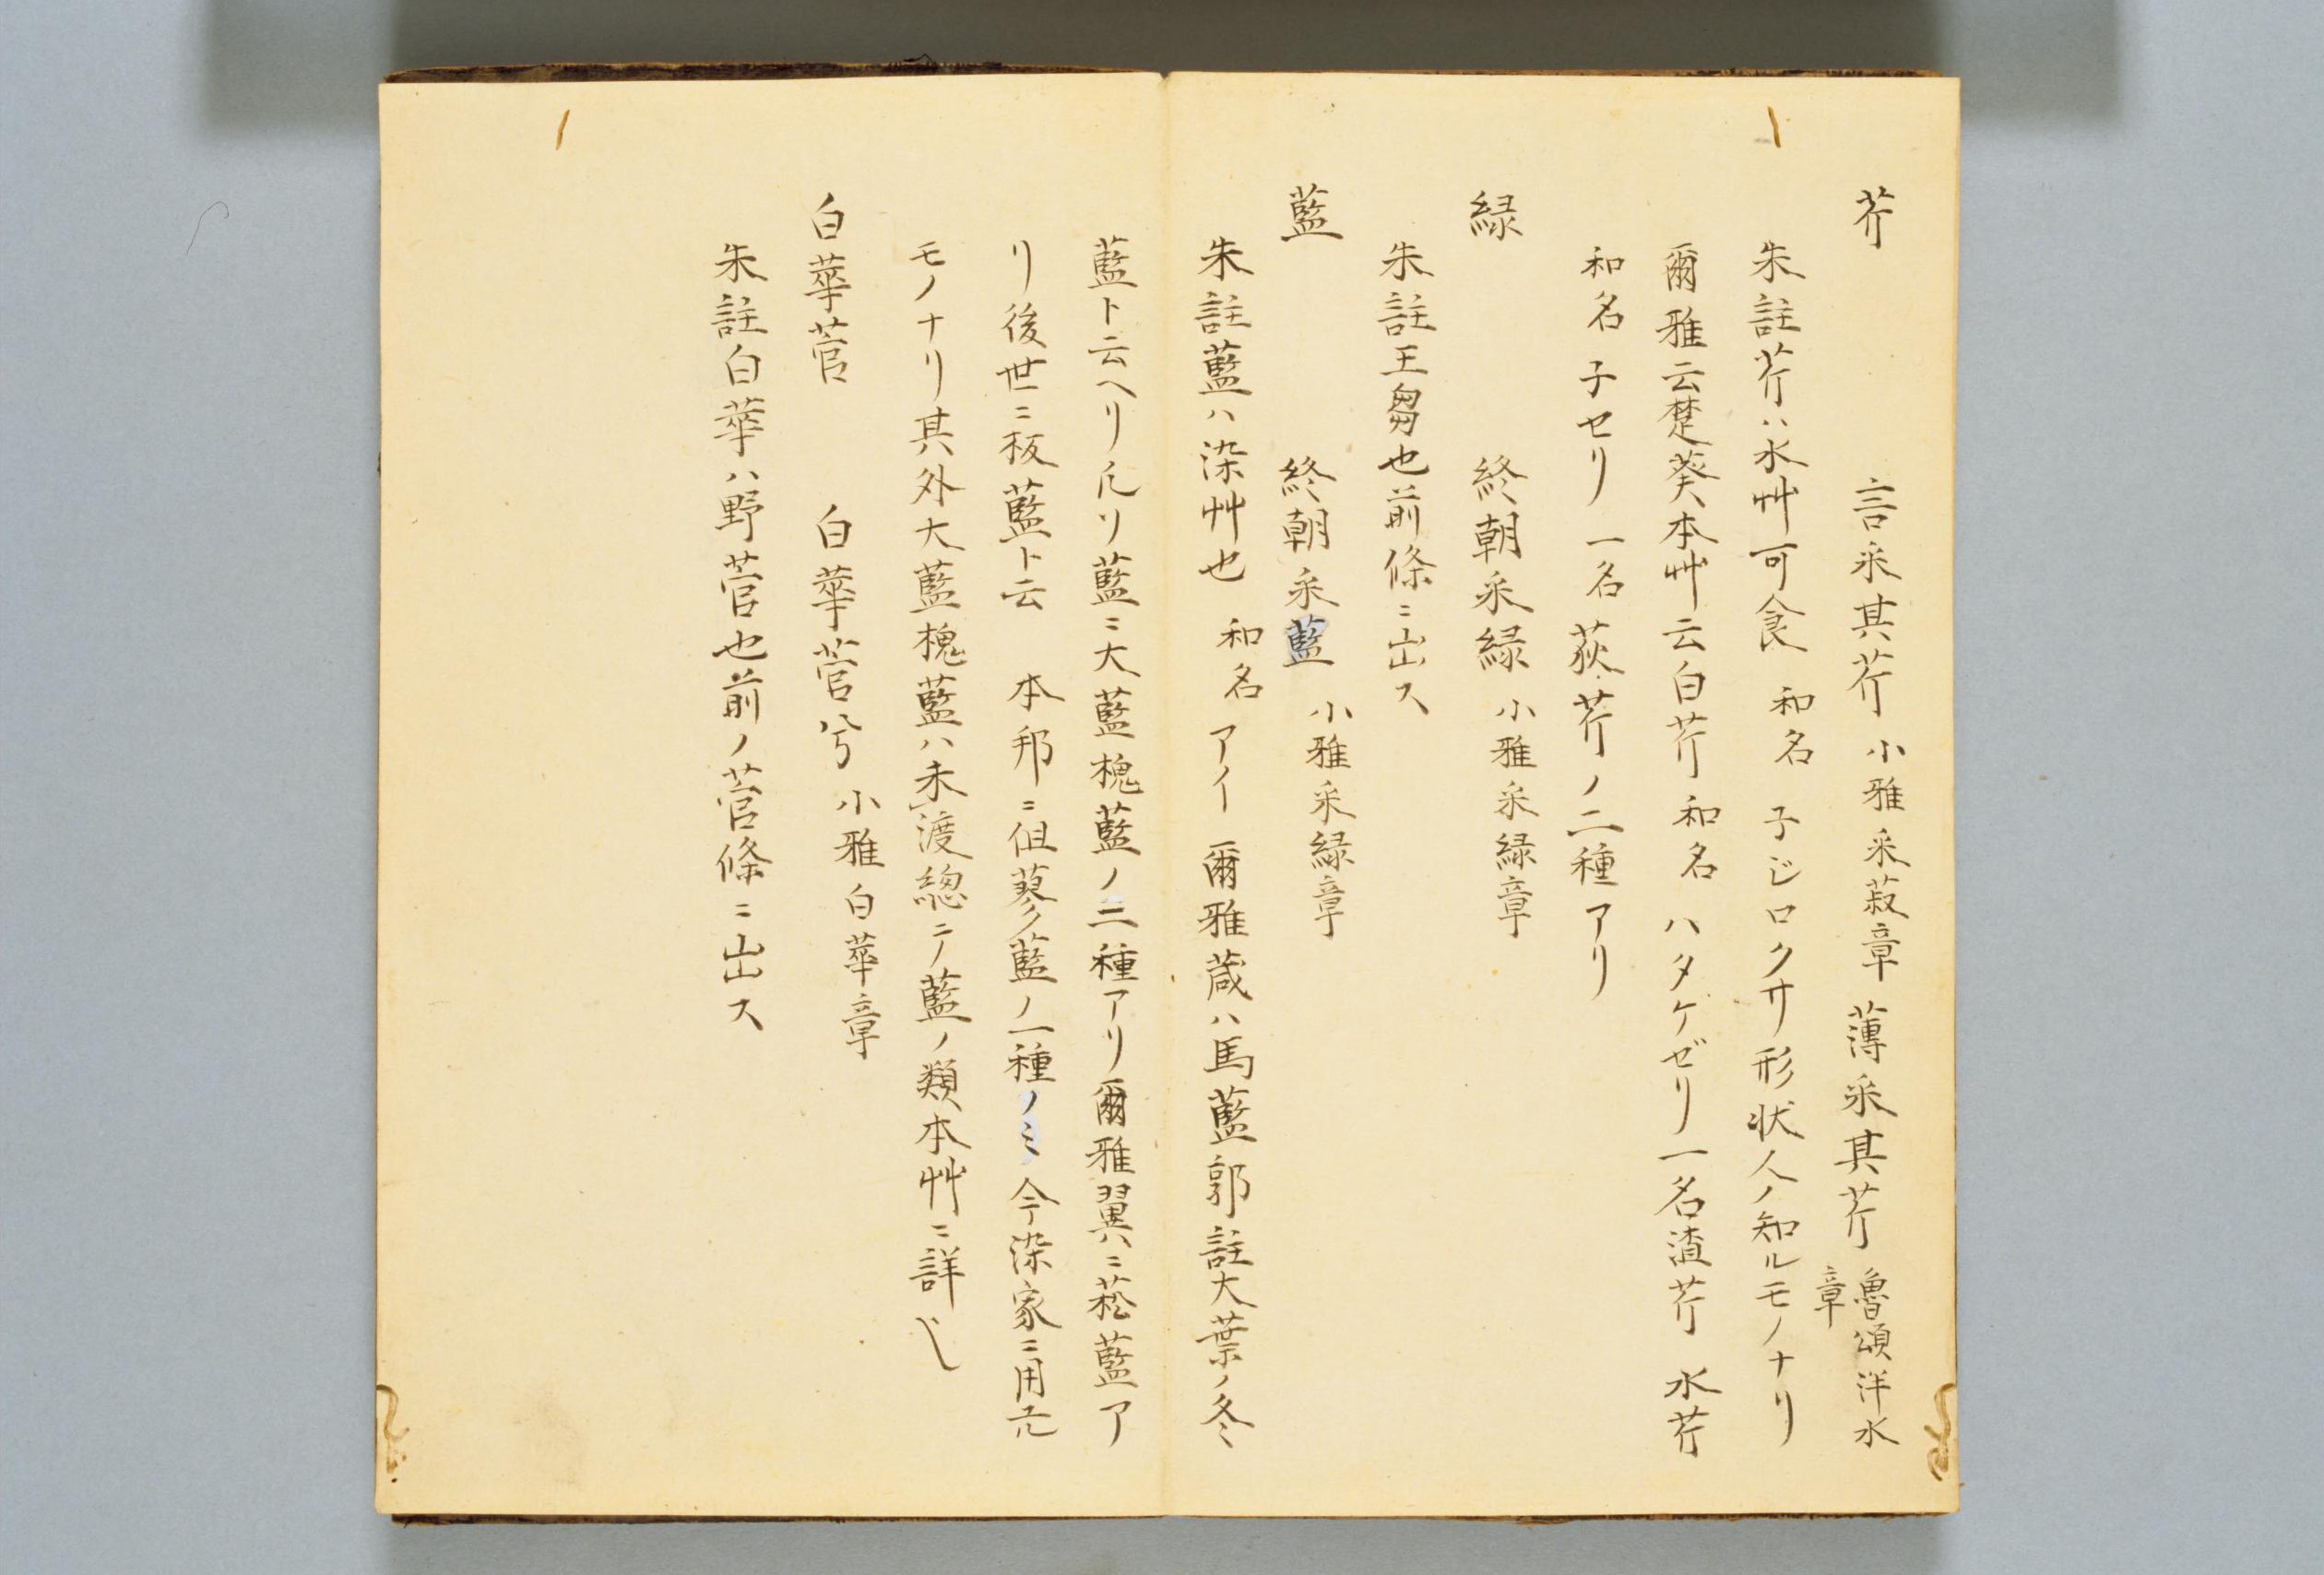 芹　言采其芹 小雅采菽章 薄采其芹 魯頌泮水章
朱註芹ハ水艸可食 和名 子ジロクサ形状人ノ知ルモノナリ
爾雅云楚葵本艸云白芹 和名 ハタケゼリ一名渣芹 水芹
和名 子セリ 一名荻芹ノ二種アリ
緑　終朝采緑 小雅采緑章
朱註王芻也前條ニ出ス
藍　終朝采藍 小雅采緑章
朱註藍ハ染艸也 和名 アイ 爾雅葴ハ馬藍郭註大葉ノ冬
藍ト云ヘリ凡ソ藍ニ大藍槐藍ノ二種アリ爾雅翼ニ菘藍ア
リ後世ニ板藍ト云 本邦ニ但蓼藍ノ一種ノミ今染家ニ用ル
モノナリ其外大藍槐藍ハ未渡總テノ藍ノ類本艸ニ詳ベシ
白華菅　白華菅兮 小雅白華章
朱註白華ハ野菅也前ノ菅條ニ出ス